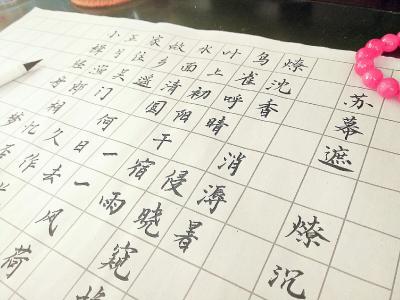 苏幕遮 燎沉
燎沈香 消溽暑
鸟雀呼晴 侵晓窥檐
叶上初阳干宿雨
水面清圆 一一风荷
故乡遥 何日去
家住吴门 久作
五月渔郎相忆
小楫轻舟 梦